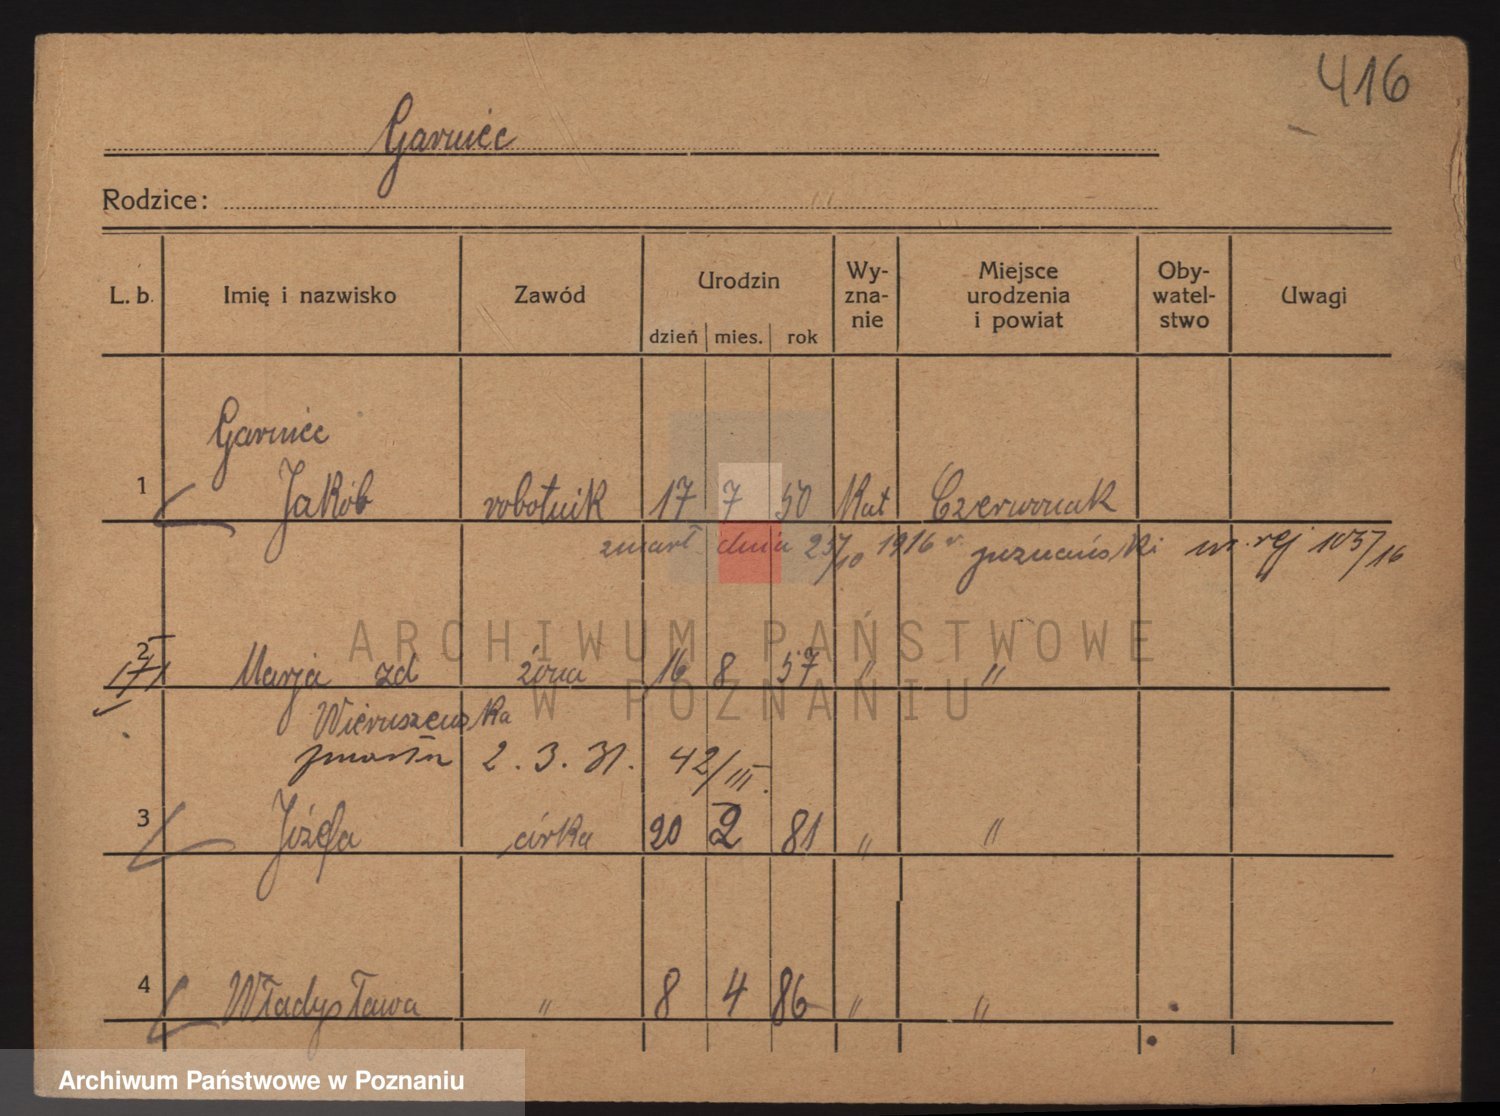 416
Garniec
Rodzice:
L. b. Imię i nazwisko Zawód Urodzin dzień mies. rok Wy-zna-nie Miejsce urodzenia i powiat Oby-watel-stwo Uwagi
Garniec
1 Jakób robotnik 17 7 50 Kat Czerwonak
zmarł dnia 25/10 1916 r. poznański nr. rej 105/16
2 Marja zd żona 16 8 57 " "
171
Wieruszewska
zmarła 2. 3. 31. 42/III.
3 Józefa córka 20 2 81 " "
4 Władysława " 8 4 86 " "
ARCHIWUM PAŃSTWOWE
W POZNANIU
Archiwum Państwowe w Poznaniu